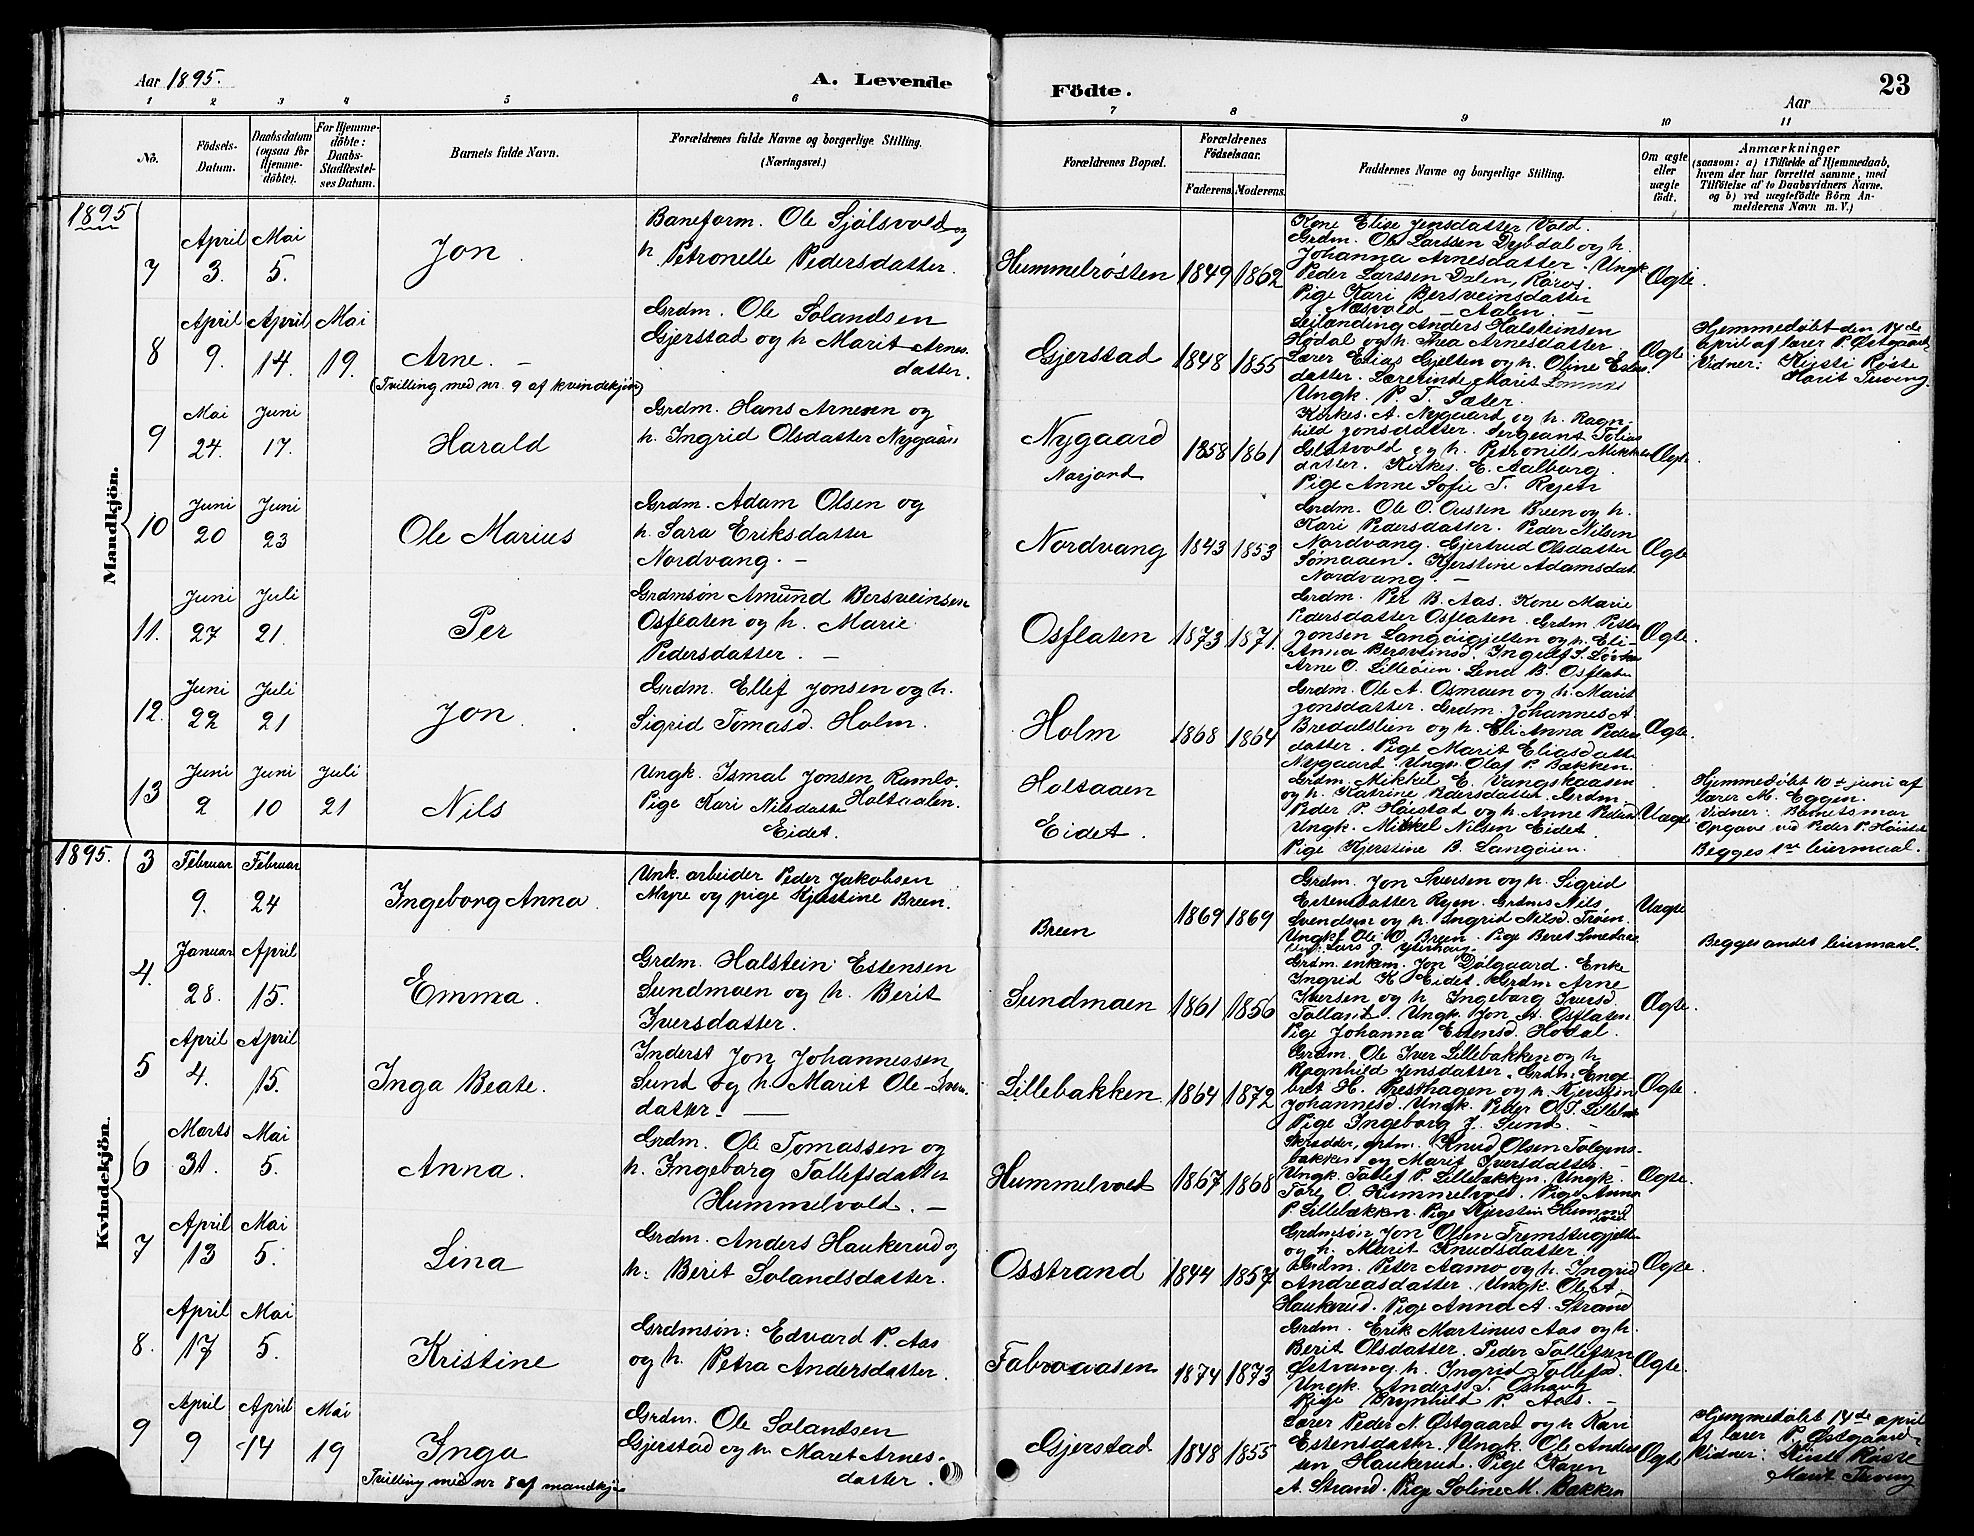 Aar 1895.
A. Levende
Födte.
Aar
23
1 2 3 4 5 6 7 8 9 10 11
No.
Födsels-Datum.
Daabsdatum (ogsaa for Hjemmedöbte).
For Hjemmedöbte: Daabs-Stadfæstelses Datum.
Barnets fulde Navn.
Forældrenes fulde Navne og borgerlige Stilling.
(Næringsvei.)
Forældrenes Bopæl.
Forældrenes Födselsaar.
Faderens. Moderens.
Faddernes Navne og borgerlige Stilling.
Om ægte eller uægte födt.
Anmærkninger
(saasom: a) i Tilfælde af Hjemmedaab, hvem der har forrettet samme, med Tilföielse af to Daabsvidners Navne, og b) ved uægtefödte Börn Anmelderens Navn m. V.)
1895
Mandkjön.
7
April 3.
Mai 5.
Jon.
Baneform. Ole Sjølsvold og
h. Petronelle Pedersdatter.
Hummelrøsten
1849
1862
Kone Elise Jensdatter Vold.
Grdm. Ole Larssen Dybdal og h.
Johanna Arnesdatter. Ungk.
Peder Larssen Dalen, Røros.
Pige Kari Bersveinsdatter
J. Næsvold – Aalen. –
Ægte.
8
April 9.
April 14.
Mai 19.
Arne. –
(Tvilling med nr. 9 af kvindekjøn)
Grdm. Ole Solandsen
Gjerstad og h. Marit Arnes-
datter.
Gjerstad
1848
1855
Leilænding Anders Halsteinsen
Hodal og h. Thea Arnesdatter.
Lærer Elias Gjelten og h. Oline Estens-
datter. Lærerinde Marit
Ungk. P. T. Sæter.
Ægte
Hjemmedøbt den 14de
april af lærer P. Østgaard.
Vidner: Kirsti Røste
Marit Tuveng.
9
Mai 24.
Juni 17.
Harald
Grdm. Hans Arnesen og
h. Ingrid Olsdatter Nygaard
Nygaard
Narjord
1858
1861
Kirkes. A. Nygaard og h. Ragn-
hild Jonsdatter. Sergeant Tobias
Gletvold og h. Petronille Mikkels-
datter. Kirkes. E. Aalborg.
Pige Anne Sofie T. Ryen
Ægte
10
Juni 20
Juni 23
Ole Marius
Grdm. Adam Olsen og
h. Sara Eriksdatter
Nordvang. –
Nordvang
1843
1853
Grdm. Ole O. Ousten Breen og h.
Kari Pedersdatter. Peder Nilsen
Nordvang. Gjertrud Olsdatter
Sømaaen. Kjerstine Adamsdat.
Nordvang. –
Ægte
11.
Juni 27
Juli 21.
Per
Grdmsøn Amund Bersveinsen
Osflaten og h. Marie
Pedersdatter. –
Osflaten
1873
1871.
Grdm. Per B. Aas. Kone Marie
Pedersdatter Osflaten. Grdm. Peter
Jonsen Langøigjelten og h. Eli-
Anna Bersveinsd. Ingelef S.
Arne O. Lilleøien. Lend B. Osflaten
Ægte.
12.
Juni 22
Juli 21
Jon.
Grdm. Ellef Jonsen og h.
Sigrid Tomasd. Holm.
Holm
1868
1864
Grdm. Ole A. Osmoen og h. Marit
Jonsdatter. Grdm. Johannes A.
Bredalslien og h. Eli Anna Peders-
datter. Pige Marit Eliasdatter
Nygaard Ungk. Olaf P. Bakken.
Ægte.
13
Juni 2
Juni 10
Juli 21
Nils
Ungk. Ismal Jonsen Ramlo.
Pige Kari Nilsdatter Holtaalen.
Eidet.
Holtaaen
Eidet.
Grdm. Mikkel E. Vangskaasen
og h. Katrine Pedersdatter. Grdm.
Peder P. Høistad og h. Anne Peders
Ungk. Mikkel Nilsen Eidet
Pige Kjerstine B. Langøien.
Uægte
Hjemmedøbt 10de juni af
lærer M. Eggen.
Vidner: Barnets mor
Opgave ved Peder P. Høistad
Begges 1ste leiermaal.
1895.
Kvindekjön.
3
Februar 9.
Februar 24
Ingeborg Anna.
Unk. arbeider Peder Jakobsen
Myre og pige Kjerstine Breen.
Breen
1869
1869
Grdm. Jon Iversen og h. Sigrid
Estensdatter Ryen. Grdms Nils
Svendsen og h. Ingrid Nilsd. Trøen.
Ungk. Ole O. Breen. Pige Beret Smedaas
Uægte
Begges andet leiermaal.
4.
Januar 28.
April 15.
Emma.
Grdm. Halstein Estensen
Sundmoen og h. Berit
Iversdatter.
Sundmoen
1861
1856
Grdm. enkem. Jon Dølgaard. Enke
Ingrid K. Eidet. Grdm Arne
Iversen og h. Ingeborg Iversd.
Tolland. Ungk. Jon H. Osflaten
Pige Johanna Estensd. Hodal.
Ægte.
5
April 4.
April 15.
Inga Beate.
Inderst Jon Johannessen
Sund og h. Marit Ole-Iver-
datter. –
Lillebakken.
1864
1872
Grdm. Ole Iver Lillebakken og h
Ragnhild Jensdatter. Grdm. Enge-
bret H. Presthagen og h. Kjerstin
Johannesd. Ungk. Peder O. I. Lillebak
Pige Ingeborg J. Sund. –
Ægte.
6
Marts 31.
Mai 5.
Anna.
Grdm. Ole Tomassen og
h. Ingeborg Tollefsdatter
Hummelvold. –
Hummelvold
1867
1868
Skrædder, grdm. Knud Olsen Tolgens-
bakken og Marit Iversdatter. –
Ungk. Tollef P. Lillebakken. Ungk.
Tore O. Hummelvold. Pige Anna
P. Lillebakken. Pige Kjerstin Hummel
vold
Ægte.
7
April 13
Mai 5.
Lina
Grdm. Anders Haukerud og
h. Berit Solandsdatter.
Osstrand
1844
1857
Grdmsøn Jon Olsen Fremstugjelt
og h. Marit Knudsdatter.
Grdm. Peter Aamo og h. Ingrid
Andreasdatter. Ungk. Ole A.
Haukerud. Pige Anna A. Strand
Ægte.
8.
April 17
Mai 5.
Kristine
Grdmsøn: Edvard P. Aas
og h. Petra Andersdatter.
Fabroaasen
1874
1873
Grdm. Erik Martinus Aas og h.
Berit Olsdatter. Peder Tollefsen
Østvang. h. Ingrid Tollefsd.
Ungk. Anders T. Oshaug
Pige Brynhild P. Aas. –
Ægte.
9
April 9
April 14
Mai 19
Inga
Tvilling med nr 8 af mandkjøn
Grdm. Ole Solandsen
Gjerstad og h. Maret Arnes-
datter.
Gjerstad
1848
1855
Lærer Peder N. Østgaard og h. Kari
Estensdattr. Ungk. Ole Anders
sen Haukerud. Pige Karen
A. Strand. Pige Soline M. Bakken
Ægte
Hjemmedøbt 14de april
af lærer P. Østgaard.
Vidner: Kirsti Røste
Marit Tuveng